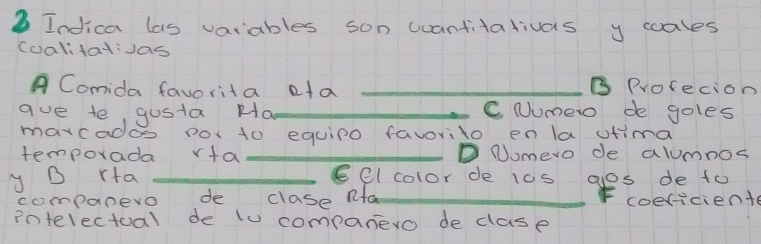 3 Indica las variables son cuantitativas y cuales
cualitativas
A Comida favorita rta ____________ B Profecion
que te gusta Rta____________ C Numero de goles
marcados por tu equipo favorito en la utima
temporada rta____________ D Numero de alumnos
y B rta ____________ E el color de los ojos de to
companero de clase Rta____________ F coeficiente
intelectual de tu compañero de clase